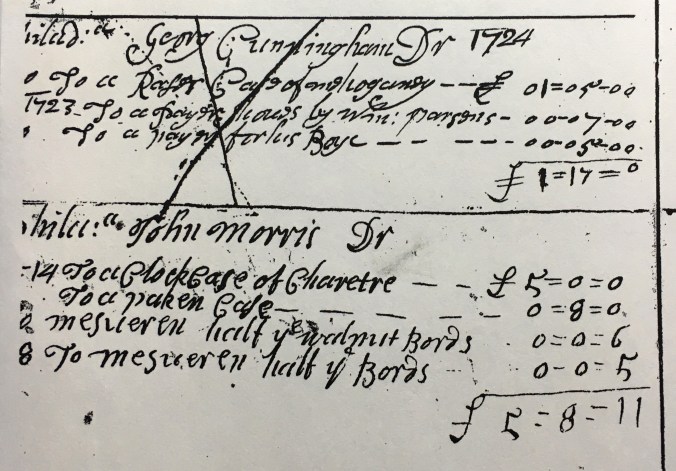 hilad:a Georg Cunningham Dr 1724
0 To a Rasor Case of mehogancy -- £ 01=05-00
1723- To a payer shoues by Wm: parsens - 00-07-00
To a payer for his Boye - - - - 00-05-00
£ 1=17=0
hila:a John Morris Dr
-14 To a Clock Case of Charetre - - £ 5=0=0
To a paken Case - - - - - - 0=8=0
mesueren half ye walnut Bords 0=0=6
8 To mesueren half ye Bords 0-0=5
£ 5=8=11